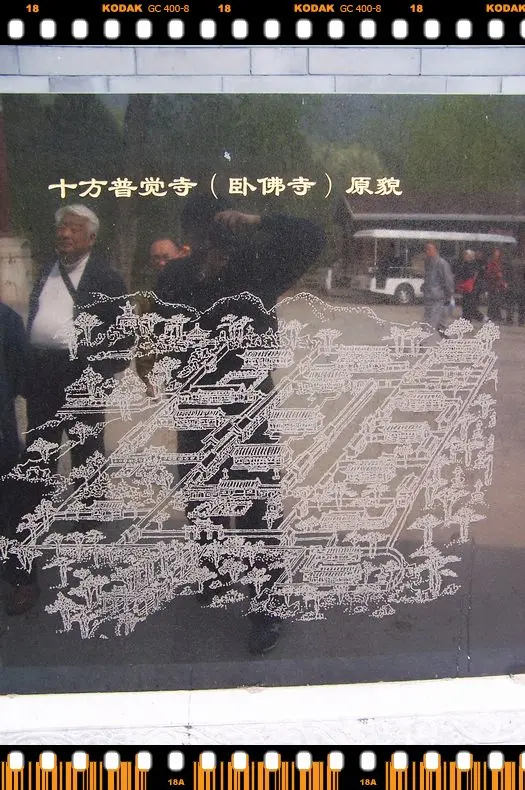 18 KODAK GC 400-8 18 KODAK GC 400-8 18 KODAK
十方普觉寺（卧佛寺）原貌
18A 18A